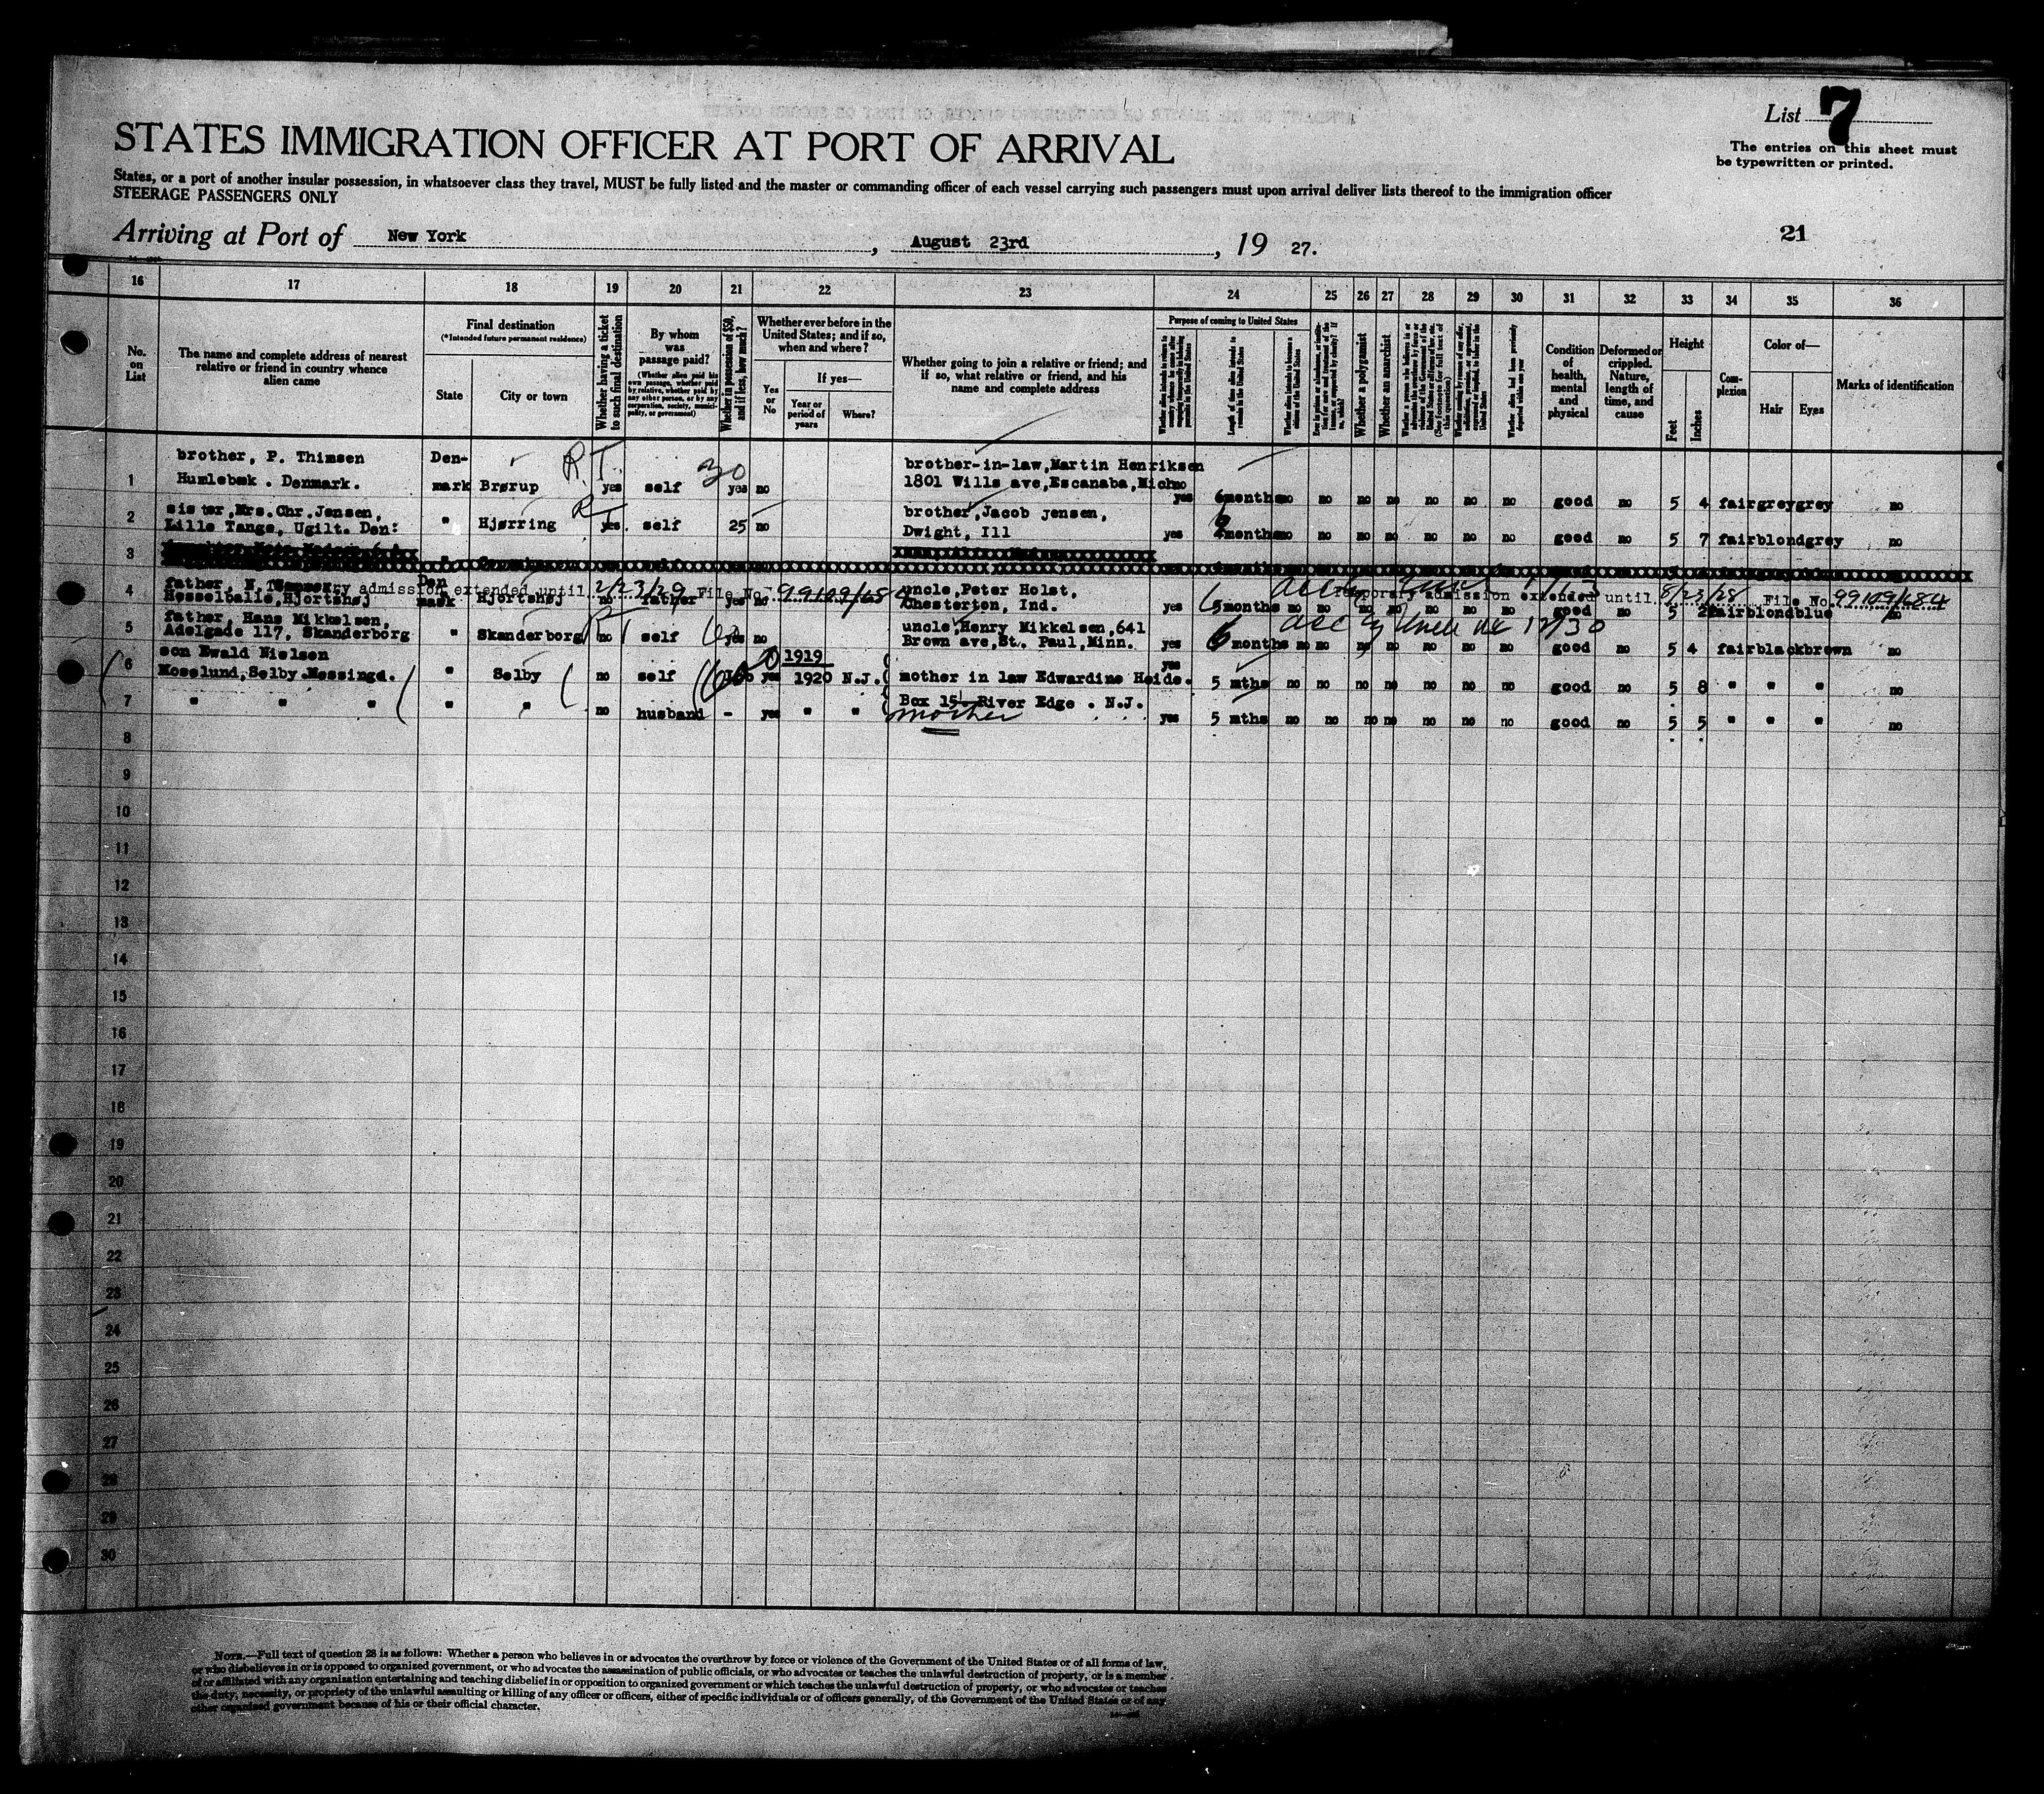 List 7
The entries on this sheet must
be typewritten or printed.
STATES IMMIGRATION OFFICER AT PORT OF ARRIVAL
States, or a port of another insular possession, in whatsoever class they travel, MUST be fully listed and the master or commanding officer of each vessel carrying such passengers must upon arrival deliver lists thereof to the immigration officer
STEERAGE PASSENGERS ONLY
Arriving at Port of New York, August 23rd, 19 27.
21
16 17 18 19 20 21 22 23 24 25 26 27 28 29 30 31 32 33 34 35 36
No. on List
The name and complete address of nearest
relative or friend in country whence
alien came
Final destination
(*Intended future permanent residence)
State
City or town
Whether having a ticket
to such final destination
By whom
was
passage paid?
(Whether alien paid his
own passage, whether paid
by relative, whether paid by
any other person, or by any
corporation, society, munici-
pality, or government)
Whether in possession of $50,
and if less, how much?
Whether ever before in the
United States; and if so,
when and where?
Yes
or
No
If yes—
Year or
period of
years
Where?
Whether going to join a relative or friend; and
if so, what relative or friend, and his
name and complete address
Purpose of coming to United States
Length of time alien intends to
remain in the United States
Whether alien intends to become a
citizen of the United States
Whether a polygamist
Whether an anarchist
Whether alien had been previously
deported within one year
Condition
of
health,
mental
and
physical
Deformed or
crippled.
Nature,
length of
time, and
cause
Height
Feet
Inches
Com-
plexion
Color of—
Hair
Eyes
Marks of identification
1 brother, P. Thimsen
Humlebæk . Denmark.
Den-
mark Brørup RT yes self 30 yes no
brother-in-law,Martin Henriksen
1801 Wills ave,Escanaba,Mich
yes 6months no no no no no no no good no 5 4 fair grey grey no
2 sister,Mrs.Chr.Jensen,
Lille Tange, Ugilt. Den:
" Hjørring RT yes. self 25 no
brother,Jacob jensen,
Dwight, Ill
yes 6 months no no no no no no no good no 5 7 fair blond grey no
3
4 father, N.
Hesselballe,Hjortshøj
Den
mark Hjortshøj no father yes no
admission extended until 2/23/29 File No. 99109/
uncle,Peter Holst,
Chesterton, Ind.
yes months no no no no no no no good no 5 2 fair blond blue no
admission extended until 8/23/28 File No. 99109/684
5 father, Hans Mikkelsen,
Adelgade 117, Skanderborg
" Skanderborg RT no self yes no
uncle,Henry Mikkelsen,641
Brown ave,St. Paul,Minn.
yes 6 months no no no no no no no good no 5 4 fair black brown no
6 son Ewald Nielsen
Moselund,Selby.Messingd.
" Selby no self yes 1919
1920 N.J.
mother in law Edwardine Heide.
yes 5 mths no no no no no no no good no 5 8 " " " no
7 " " " " " no husband - yes " "
Box 15. River Edge . N.J.
mother
yes 5 mths no no no no no no no good no 5 5 " " " no
8
9
10
11
12
13
14
15
16
17
18
19
20
21
22
23
24
25
26
27
28
29
30
NOTE.—Full text of question 28 is as follows: Whether a person who believes in or advocates the overthrow by force or violence of the Government of the United States or of all forms of law,
or who disbelieves in or is opposed to organized government, or who advocates the assassination of public officials, or who advocates or teaches the unlawful destruction of property, or is a member
of or affiliated with any organization entertaining and teaching disbelief in or opposition to organized government or which teaches the unlawful destruction of property, or who advocates or teaches
the duty, necessity, or propriety of the unlawful assaulting or killing of any officer or officers, either of specific individuals or of officers generally, of the Government of the United States or of any
other organized government because of his or their official character.